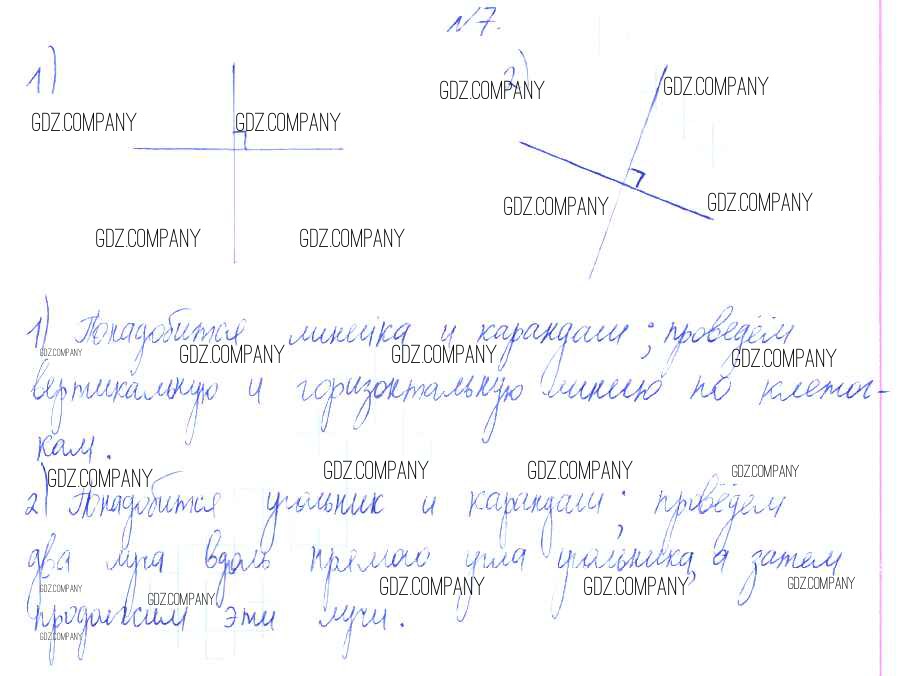 №7.
1)
2)
GDZ.COMPANY GDZ.COMPANY
GDZ.COMPANY GDZ.COMPANY
GDZ.COMPANY GDZ.COMPANY
GDZ.COMPANY GDZ.COMPANY
1) Понадобится линейка и карандаш; проведём
GDZ.COMPANY GDZ.COMPANY GDZ.COMPANY GDZ.COMPANY
вертикальную и горизонтальную линию по клеточ-
кам.
GDZ.COMPANY GDZ.COMPANY GDZ.COMPANY GDZ.COMPANY
2) Понадобится угольник и карандаш; проведём
два луча вдоль прямого угла угольника, а затем
GDZ.COMPANY GDZ.COMPANY GDZ.COMPANY GDZ.COMPANY GDZ.COMPANY
продолжим эти лучи.
GDZ.COMPANY